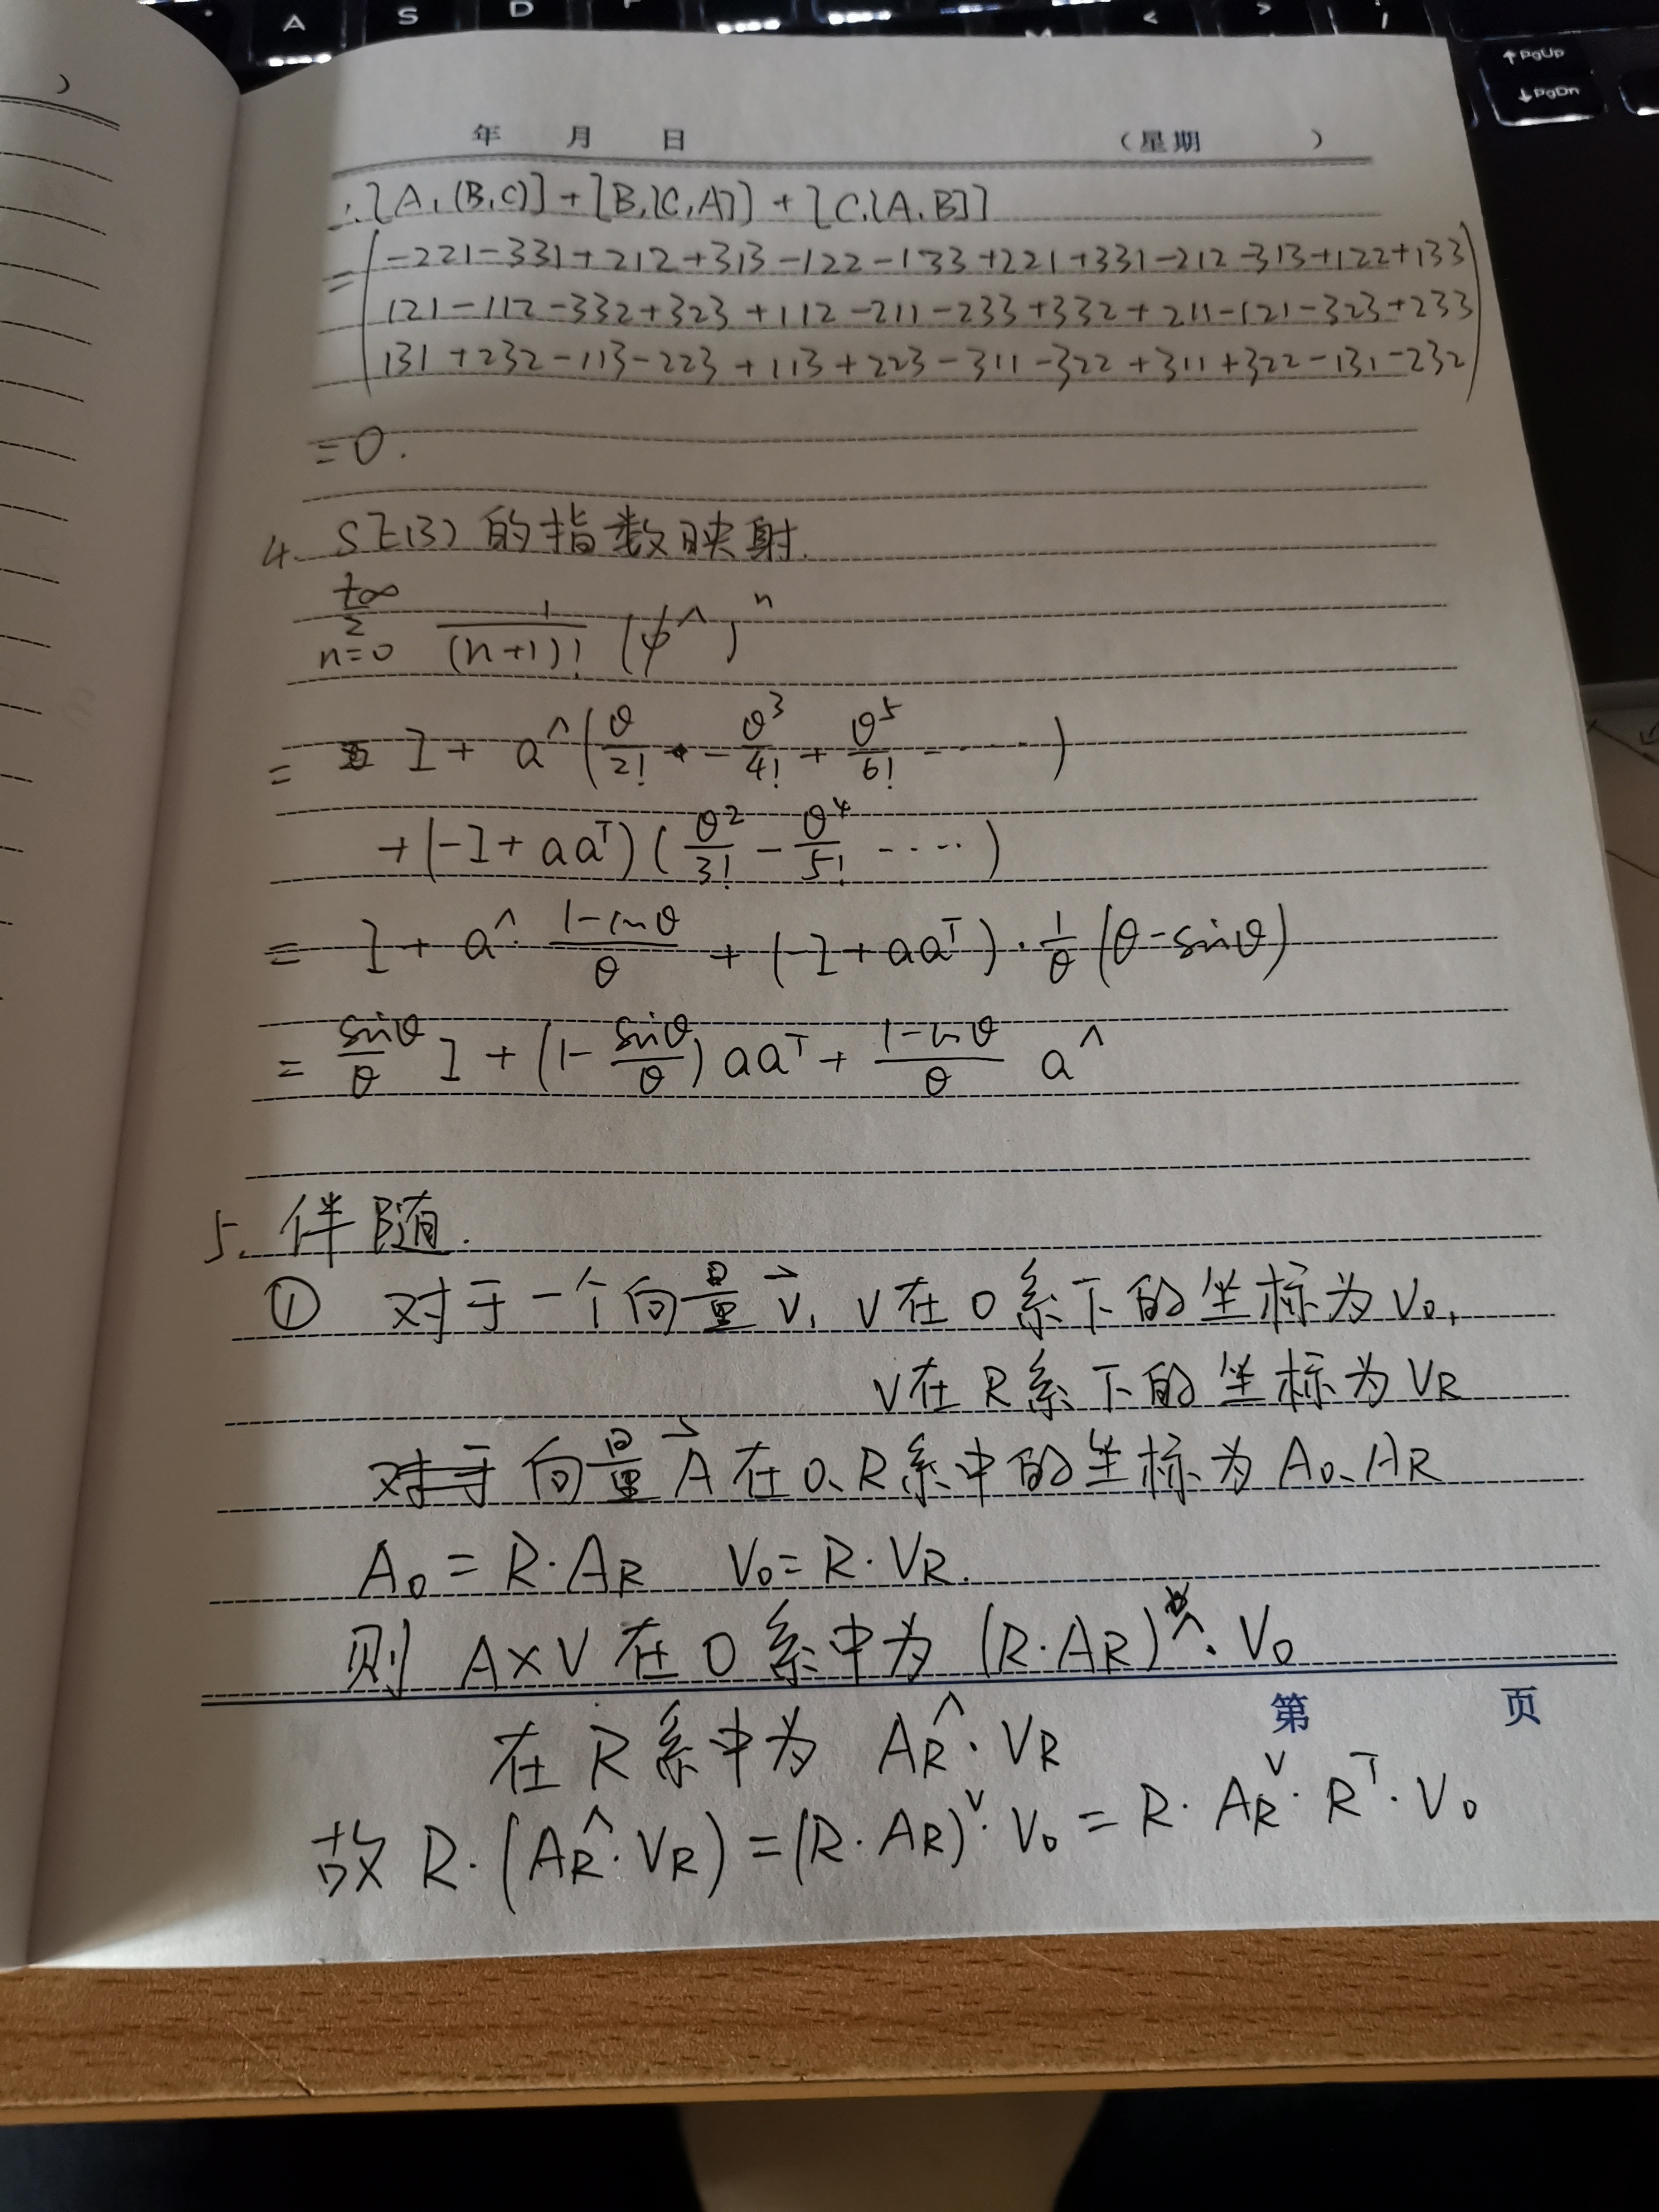 A S D
↑PgUp
↓PgDn
年 月 日 (星期 )
∴[A,(B,C)]+[B,[C,A]]+[C,[A,B]]
= ( -221-331+212+313-122-133+221+331-212-313+122+133
121-112-332+323+112-211-233+332+211-121-323+233
131+232-113-223+113+223-311-322+311+322-131-232 )
=0.
4. SE(3) 的指数映射.
\sum_{n=0}^{+∞} \frac{1}{(n+1)!} (φ^∧)^n
= I + a^∧(\frac{θ}{2!} - \frac{θ^3}{4!} + \frac{θ^5}{6!} - ····)
+(-I+aa^T)(\frac{θ^2}{3!} - \frac{θ^4}{5!} ····)
= I + a^∧·\frac{1-cosθ}{θ} + (-I+aa^T)·\frac{1}{θ}(θ-sinθ)
= \frac{sinθ}{θ} I + (1-\frac{sinθ}{θ})aa^T + \frac{1-cosθ}{θ} a^∧
5. 伴随.
① 对于一个向量 \vec{v}, v在O系下的坐标为V_0,
v在R系下的坐标为V_R
对于向量 \vec{A} 在O、R系中的坐标为 A_0、A_R
A_0=R·A_R V_0=R·V_R.
则 A×V 在O系中为 (R·A_R)^∧·V_0
第 页
在R系中为 A_R^∧·V_R
故 R·(A_R^∧·V_R)=(R·A_R)^∨·V_0=R·A_R^∨·R^T·V_0